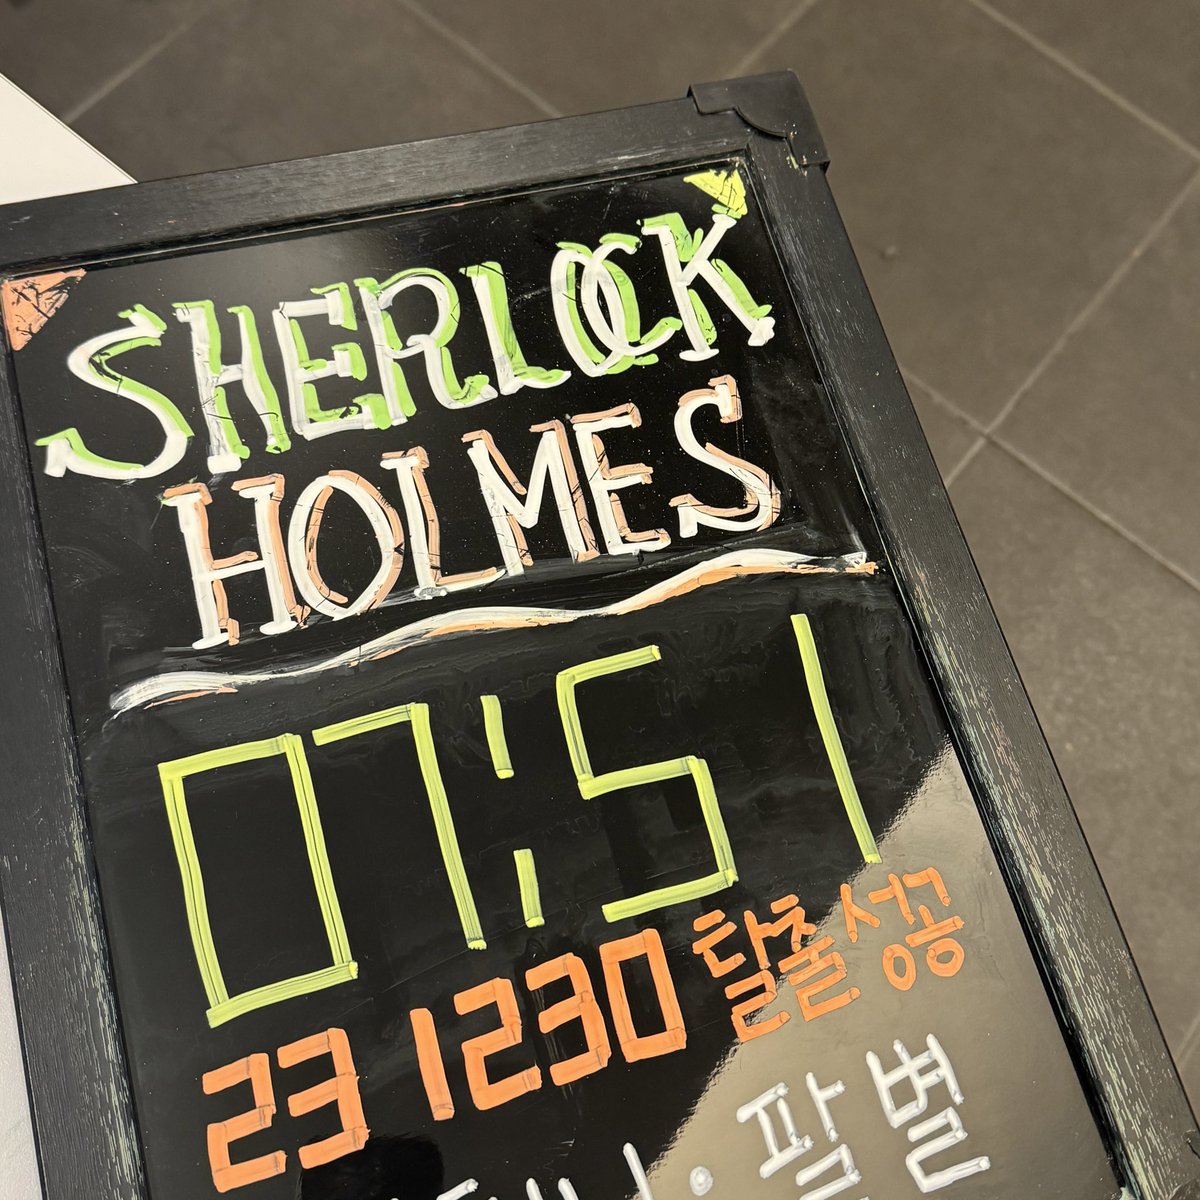 SHERLOCK
HOLMES
07:51
231230 탈출성공